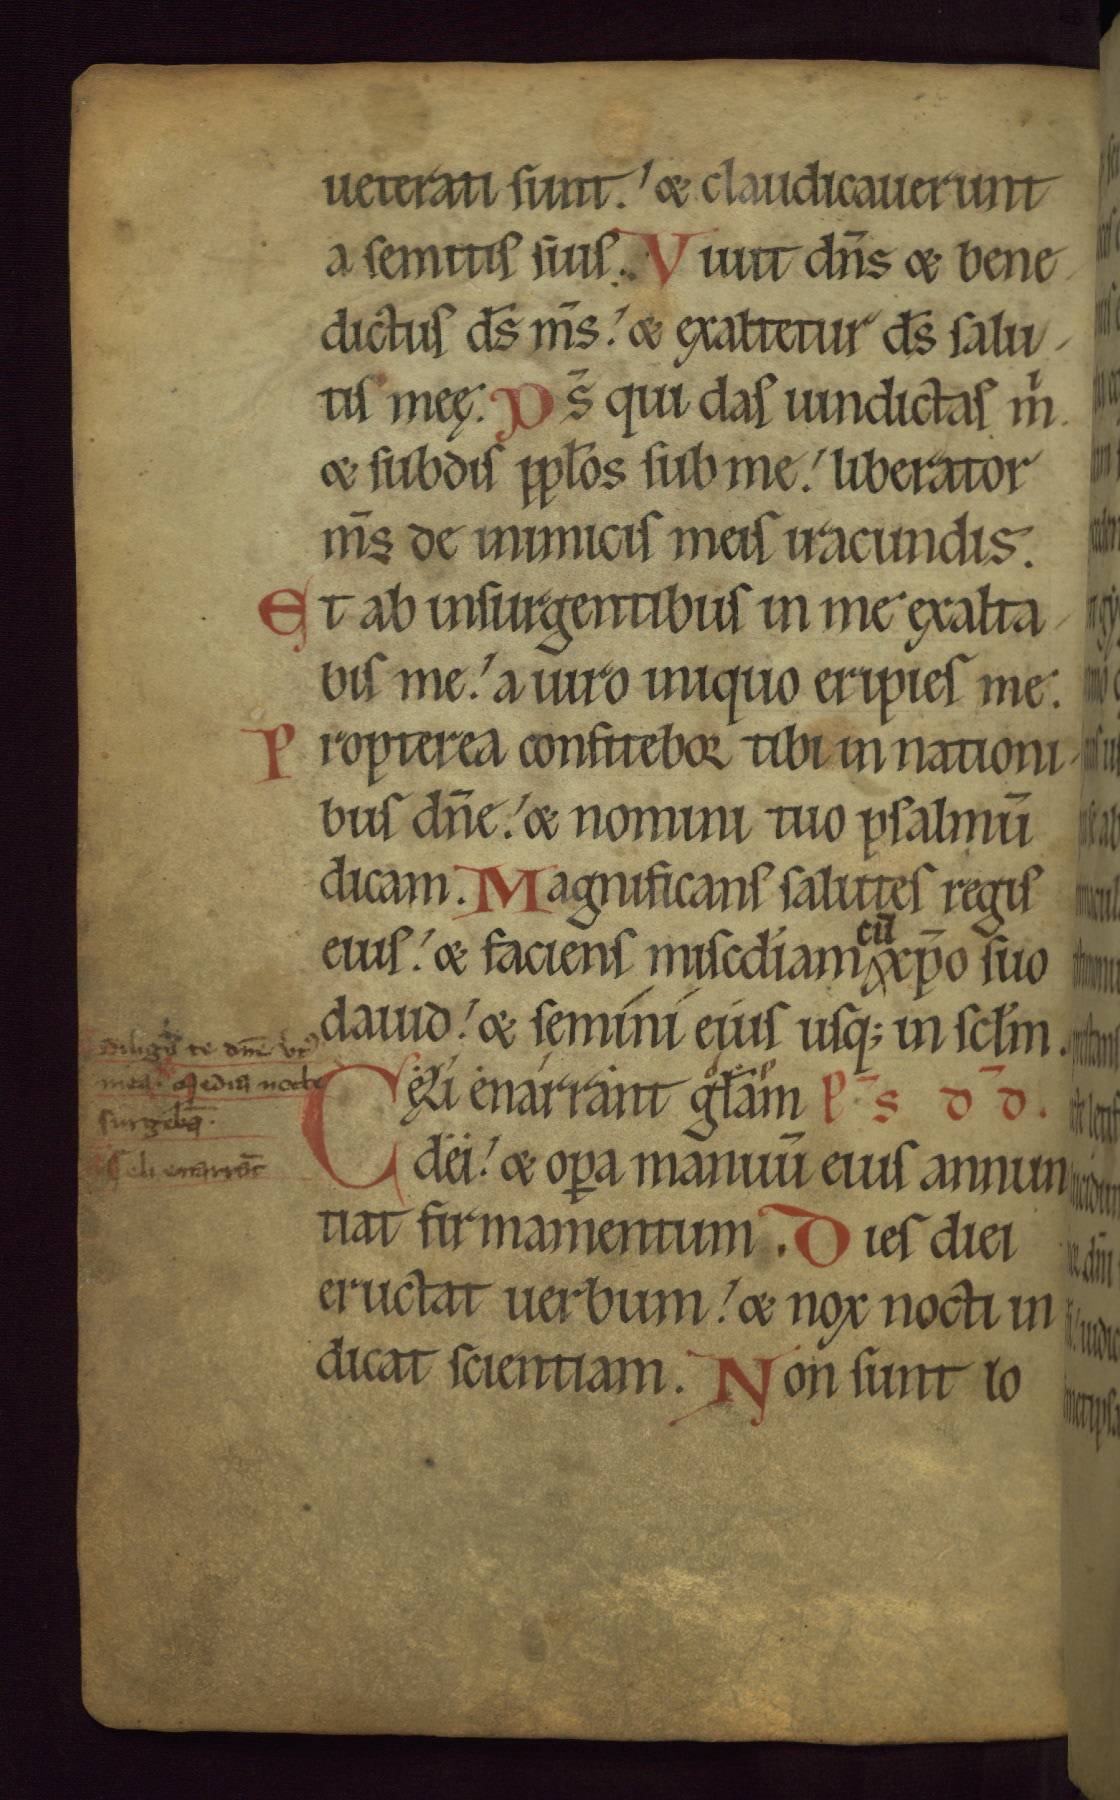 ueterati sunt.' & claudicauerunt
a semitis suis. Viuit dn̄s & bene
dictus ds̄ ms̄.' & exaltetur ds̄ salu
tis meę. Ds̄ qui das uindictas m̄
& subdis pplos sub me.' liberator
ms̄ de inimicis meis iracundis.
Et ab insurgentibus in me exalta
bis me.' a uiro iniquo eripies me.
Propterea confitebor tibi in nationi
bus dn̄e.' & nomini tuo psalmū
dicam. Magnificans salutes regis
eius.' & faciens misc̄diam cū xp̄o suo
dauid.' & semini eius usq; in sclm̄.
Diligā te dn̄e vt᾿
mea. Media nocte
surgebā.
Celi enarrāt
Cęli enarrant glām ps̄ dd̄.
dei.' & opa manuū eius annun
tiat firmamentum. Dies diei
eructat uerbum.' & nox nocti in
dicat scientiam. Non sunt lo